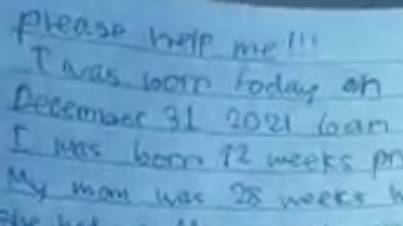 please help me!!!
I was born today on
December 31 2021 6am
I was born 12 weeks pr
My mom was 28 weeks